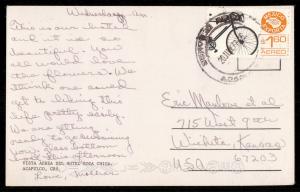 Wednesday am
This is our hotel
and it is so
beautiful. You
all would love
the flowers. We
think one could
get to liking this
life pretty easily.
We are getting
ready to go
glass bottom
boat this afternoon
Love, Mother
VISTA AEREA DEL HOTEL BOCA CHICA.
ACAPULCO, GRO.
Eric Manlove et al
715 West 9th
Wichita, Kansas
67203
USA
MEXICO EXPORTA
1.60
AEREO